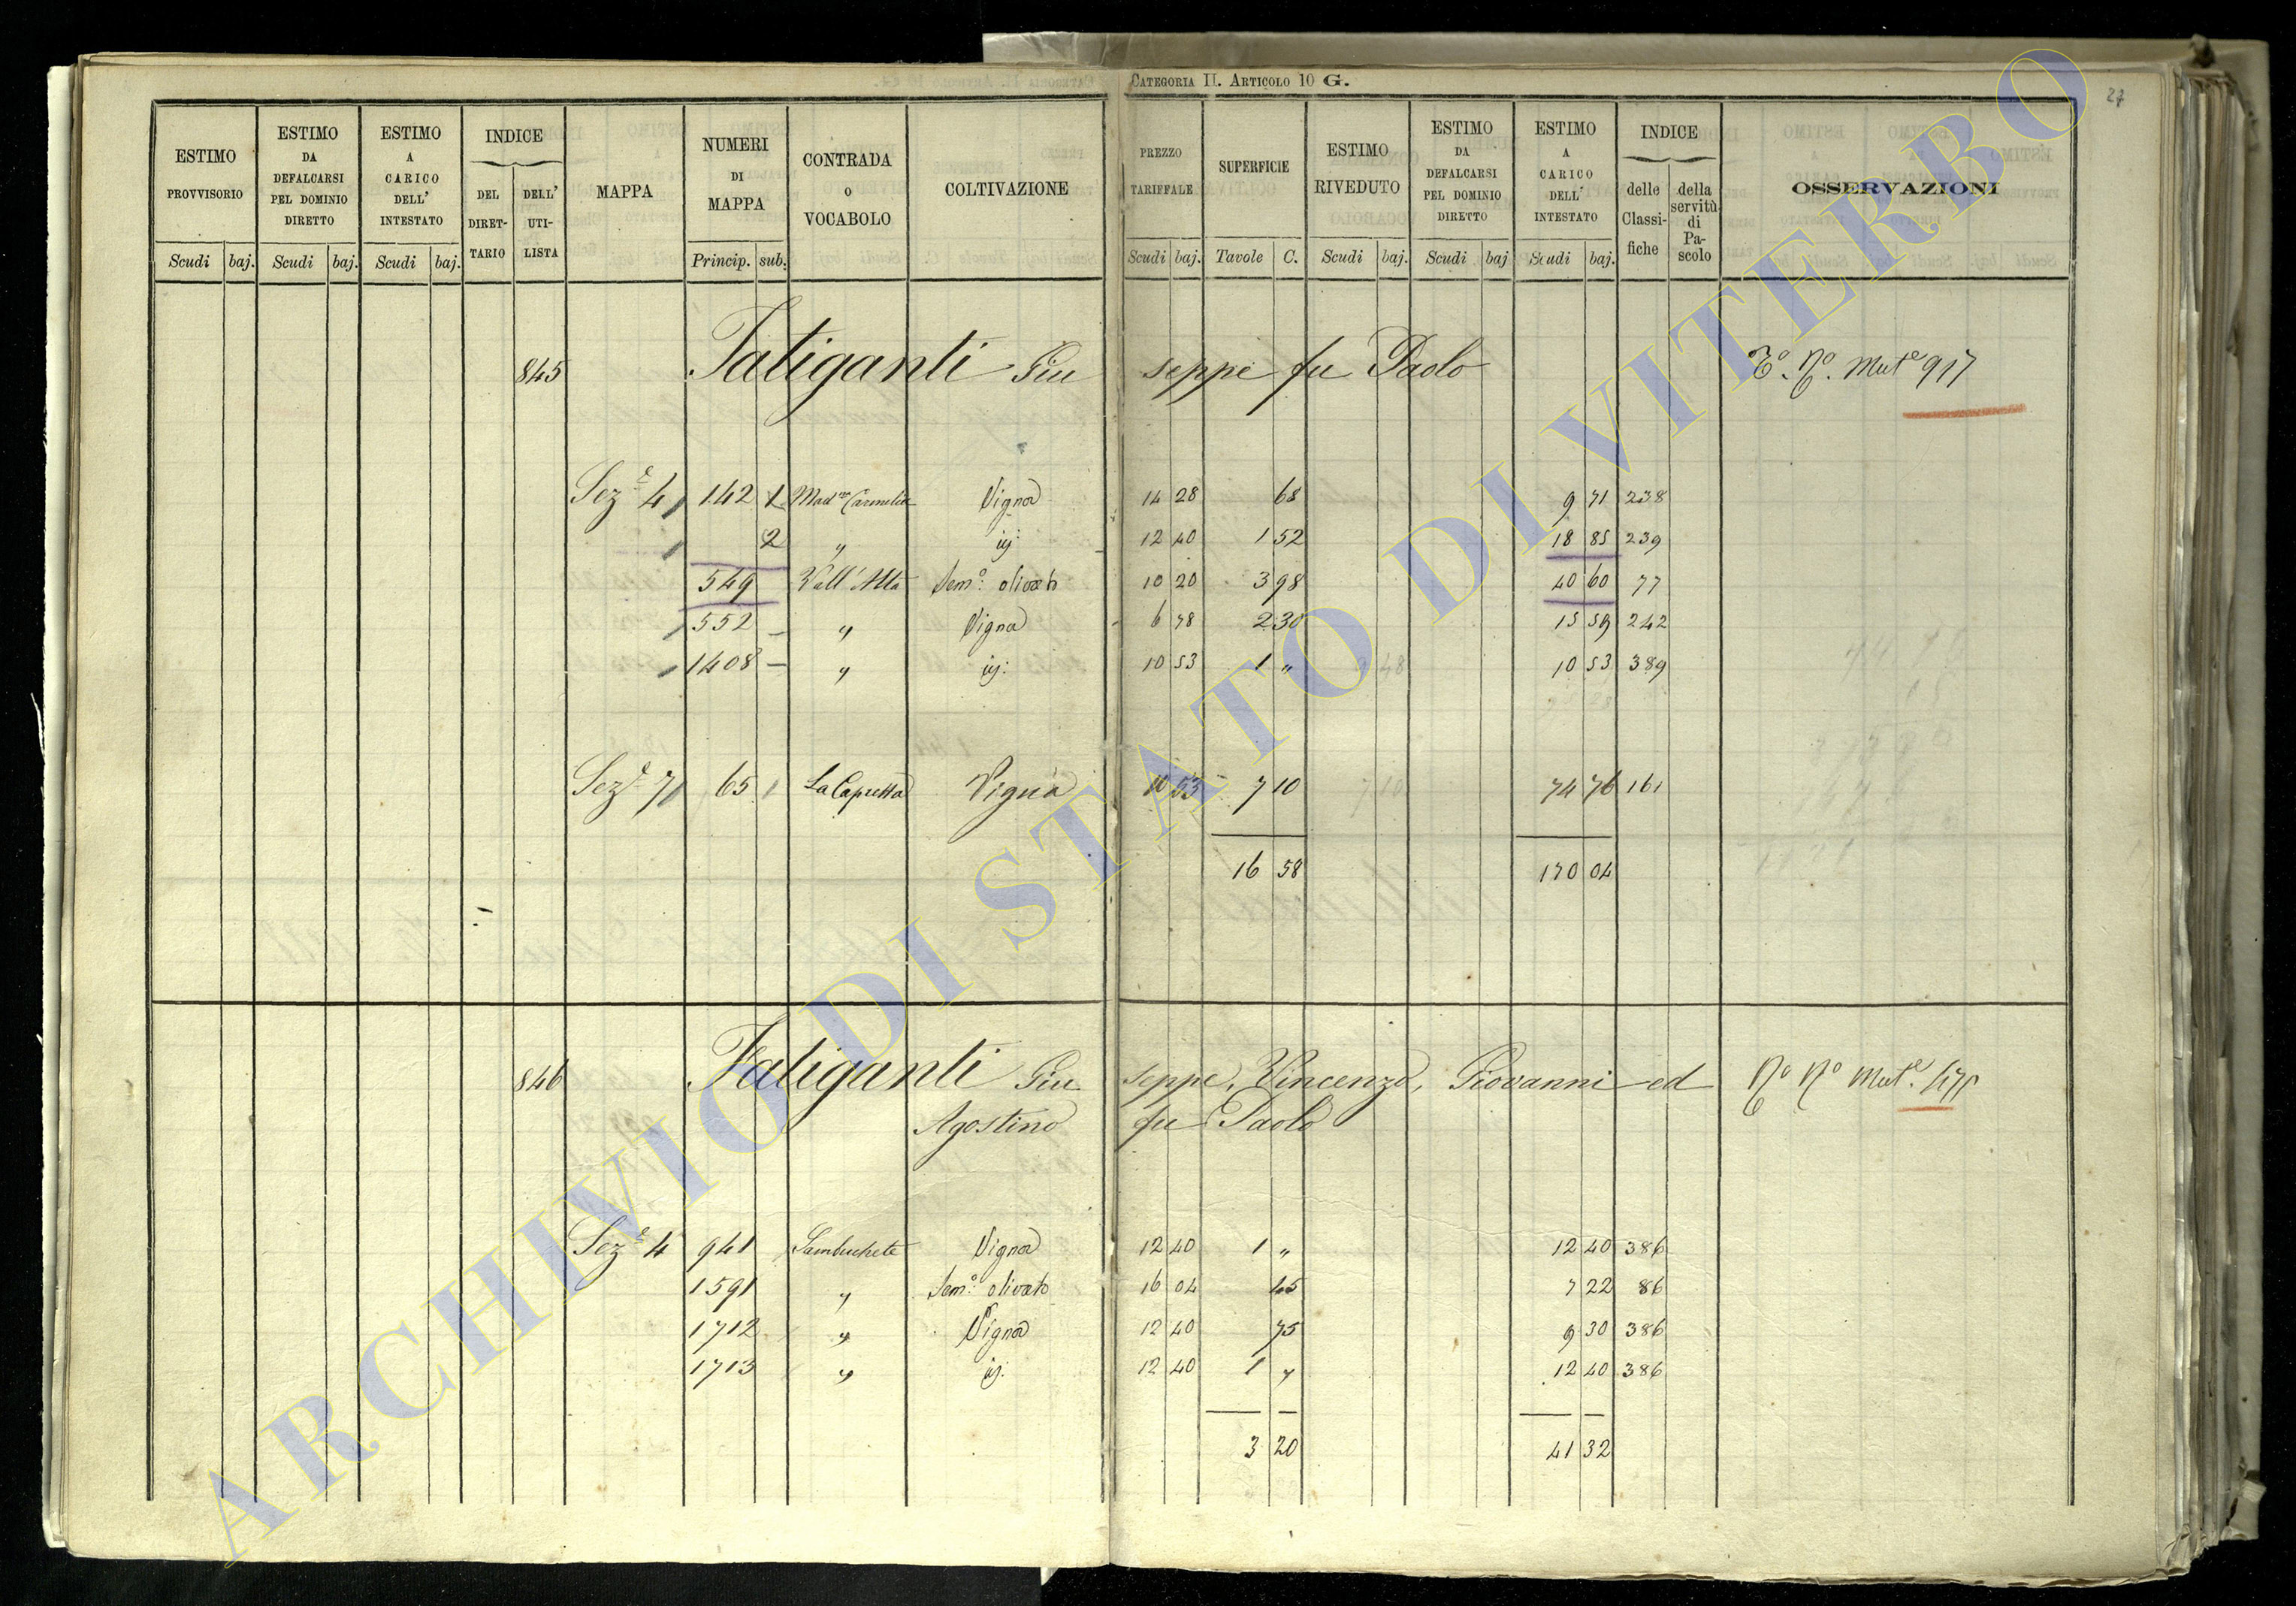 CATEGORIA II. ARTICOLO 10 G.
27
ESTIMO PROVVISORIO Scudi baj.
ESTIMO DA DEFALCARSI PEL DOMINIO DIRETTO Scudi baj.
ESTIMO A CARICO DELL' INTESTATO Scudi baj.
INDICE DEL DIRET-TARIO DELL' UTI-LISTA
MAPPA
NUMERI DI MAPPA Princip. sub.
CONTRADA O VOCABOLO
COLTIVAZIONE
PREZZO TARIFFALE Scudi baj.
SUPERFICIE Tavole C.
ESTIMO RIVEDUTO Scudi baj.
ESTIMO DA DEFALCARSI PEL DOMINIO DIRETTO Scudi baj
ESTIMO A CARICO DELL' INTESTATO Scudi baj.
INDICE delle Classi-fiche della servitù di Pa-scolo
OSSERVAZIONI
845 Fatiganti Giu seppe fu Paolo Mut.e 917
Sez.e 4 142 1 Mad.na Carmelia Vigna 14 28 68 9 71 238
2 " id: 12 40 1 52 18 85 239
549 Vall'Alta Sem.o olivato 10 20 3 98 40 60 77
552 — " Vigna 6 78 2 30 15 59 242
1408 — " id: 10 53 1 " 10 53 389
Sez.e 7 65 La Capretta Vigna 10 53 7 10 74 76 161
16 58 170 04
846 Fatiganti Giu seppe, Vincenzo, Giovanni ed Mut.e
Agostino fu Paolo
Sez.e 4 941 Sambuchete Vigna 12 40 1 " 12 40 386
1591 " Sem.o olivato 16 04 45 7 22 86
1712 " Vigna 12 40 75 9 30 386
1713 " id. 12 40 1 " 12 40 386
3 20 41 32
ARCHIVIO DI STATO DI VITERBO